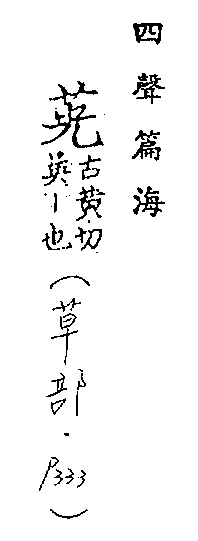 四聲篇海
茪
古黃切
英丨也
（草部．P333）